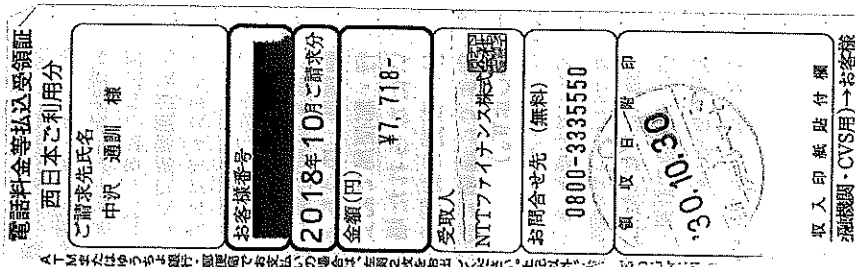 電話料金等払込受領証
西日本ご利用分
ご請求先氏名
中沢 通訓 様
お客様番号
2018年10月ご請求分
金額(円)
¥7,718-
受取人
NTTファイナンス株式会社
お問合せ先 (無料)
0800-3335550
領収日附印
'30.10.30
収入印紙貼付欄
(金融機関・CVS用)→お客様
ATMまたはゆうちょ銀行・郵便局でお支払いの場合は、